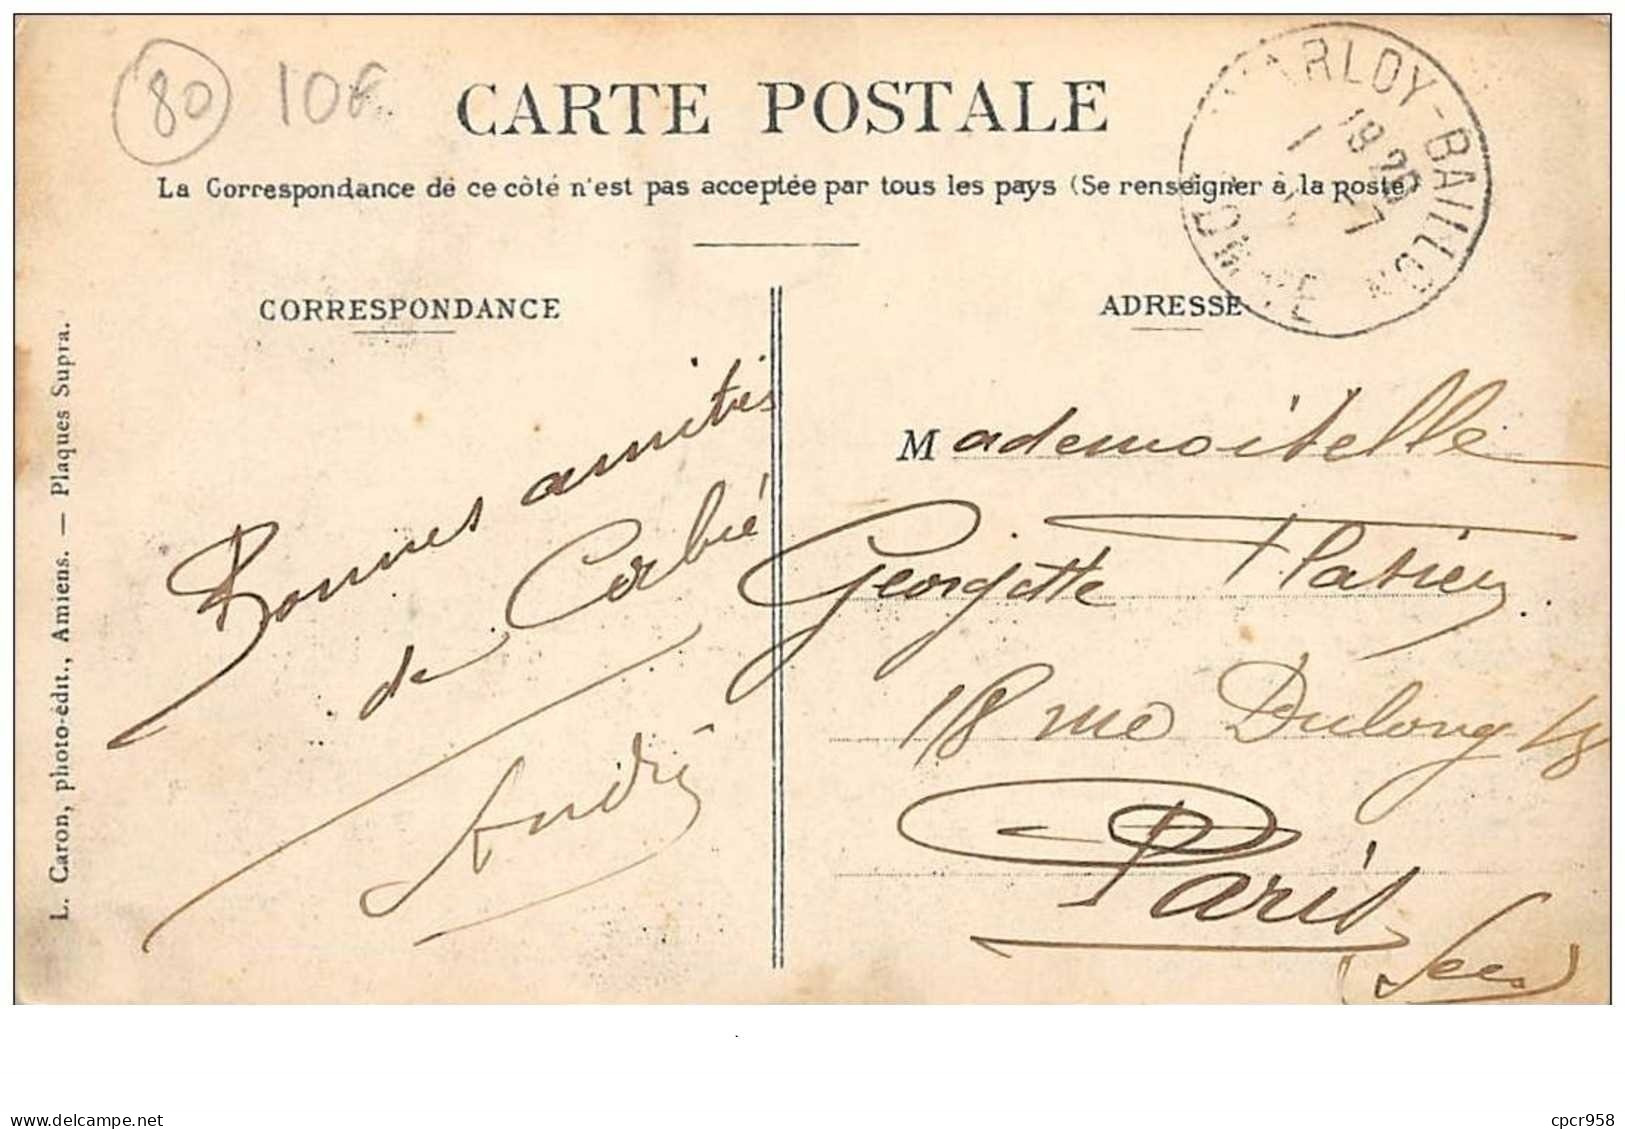 80 10F
CARTE POSTALE
La Correspondance de ce côté n'est pas acceptée par tous les pays (Se renseigner à la poste)
WARLOY-BAILLON
SOMME
18 20
CORRESPONDANCE
ADRESSE
Bonnes amitiés
de Corbie
André
Mademoiselle
Georgette
18 rue Dulong 18
Paris
L. Caron, photo-édit., Amiens. — Plaques Supra.
delcampe.net
cpcr958